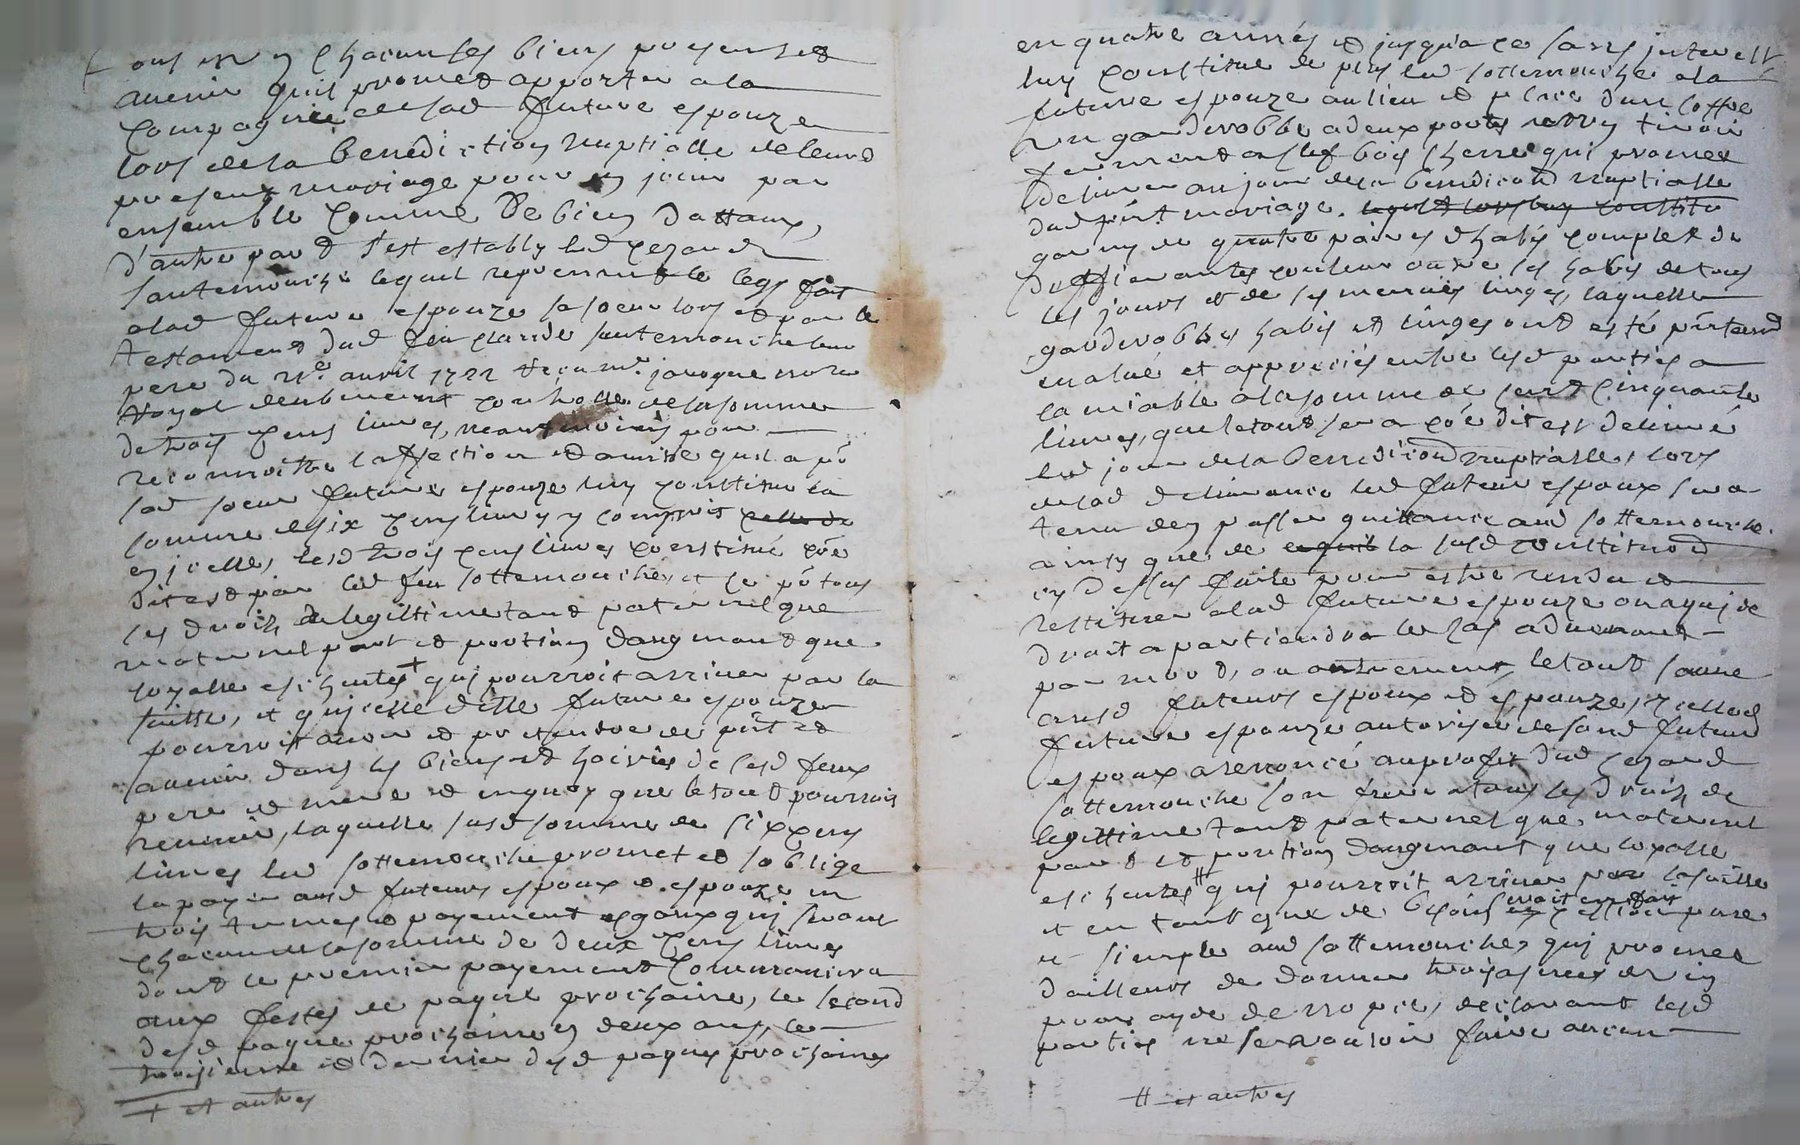 ous en y chacun les biens presens et
avenir quil promet apporter a la
compagnie de lad future espouze
lors de la benediction nuptialle de leurd
present mariage pour y jouir par
ensemble comme de bien dottaux,
d'autre part s'est estably led cezard
sautemouche lequel reprenant le legs fait
alad future espouze sa soeur lors et par le
testament dud feu claude sautemouche leur
pere du avril 1722 receu me notre
royal deubment de la somme
de trois cens livres, neantmoins pour
reconnoitre laffection et amitié quil a pr
sad soeur future espouze luy constitue la
somme de six cens livres y compris celle de
en jcelle, lesd trois cens livres constitué côe
dit est par led feu sottemouche, et ce pr tous
les droits de legittime tant paternel que
maternel part et portion daugmant que
loyalle escheutes + qui pourroit arriver par la
suitte, et qu'jcelle ditte future espouze
pourroit avoir et pretendre de pnt et
avenir dans les biens et hoiries de lesd feux
pere et mere et en quoy que le tout pourroit
revenir, laquelle susd somme de six cens
livres led sottemouche promet et soblige
la payer ausd futeurs espoux et espouze en
trois termes et payement egaux qui seront
chacun de la somme de deux cens livres
dont le premier payement commancera
aux festes de paque prochaine, le second
desd paque prochaine en deux ans, le
troisieme et dernier desd paques prochaines
+ et autres
en quatre années et jusqu'a ce sans jnterest
luy constitue de plus led sottemouche a la
future espouze au lieu et place dun coffre
un garderobbe a deux portes tiroir
fermant a clef bois chene qui promet
delivrer au jour de la benedicond nuptialle
dud pnt mariage. constitu
garny de quatre paires dhabis complet de
differantes couleur outre ses habis de tous
les jours et de ses menues linges, laquelle
garderobbes habis et linges ont esté pntement
evalué et appreciés entre lesd parties a
lamiable a la somme de cent cinquante
livres, que le tout sera côe dit est delivré
led jour de la benedicond nuptialle, lors
de lad delivrance led futeur espoux sera
tenu den passer quittance aud sottemouche.
ainsy que de la susd constituond
cy dessus faite pour estre rendu et
restituer alad future espouze ou a qui de
droit apartiendra le cas advenant
par mort, ou autrement, le tout sauve
ausd futeurs espoux et espouze, jcelle
future espouze autorisée de sond futeur
espoux a renoncé au profit dud cezard
sottemouche son frere a tous les droits de
legittime tant paternel que maternel
part et portion daugmant que loyalle
escheutes # qui pourroit arriver par la suitte
et en tant que de besoin en fait cession pure
et simple aud sottemouche, qui promet
dailleurs de donner trois asnées de vin
pour ayde de nopces, declarant lesd
parties ne se vouloir faire aucun
# et autres